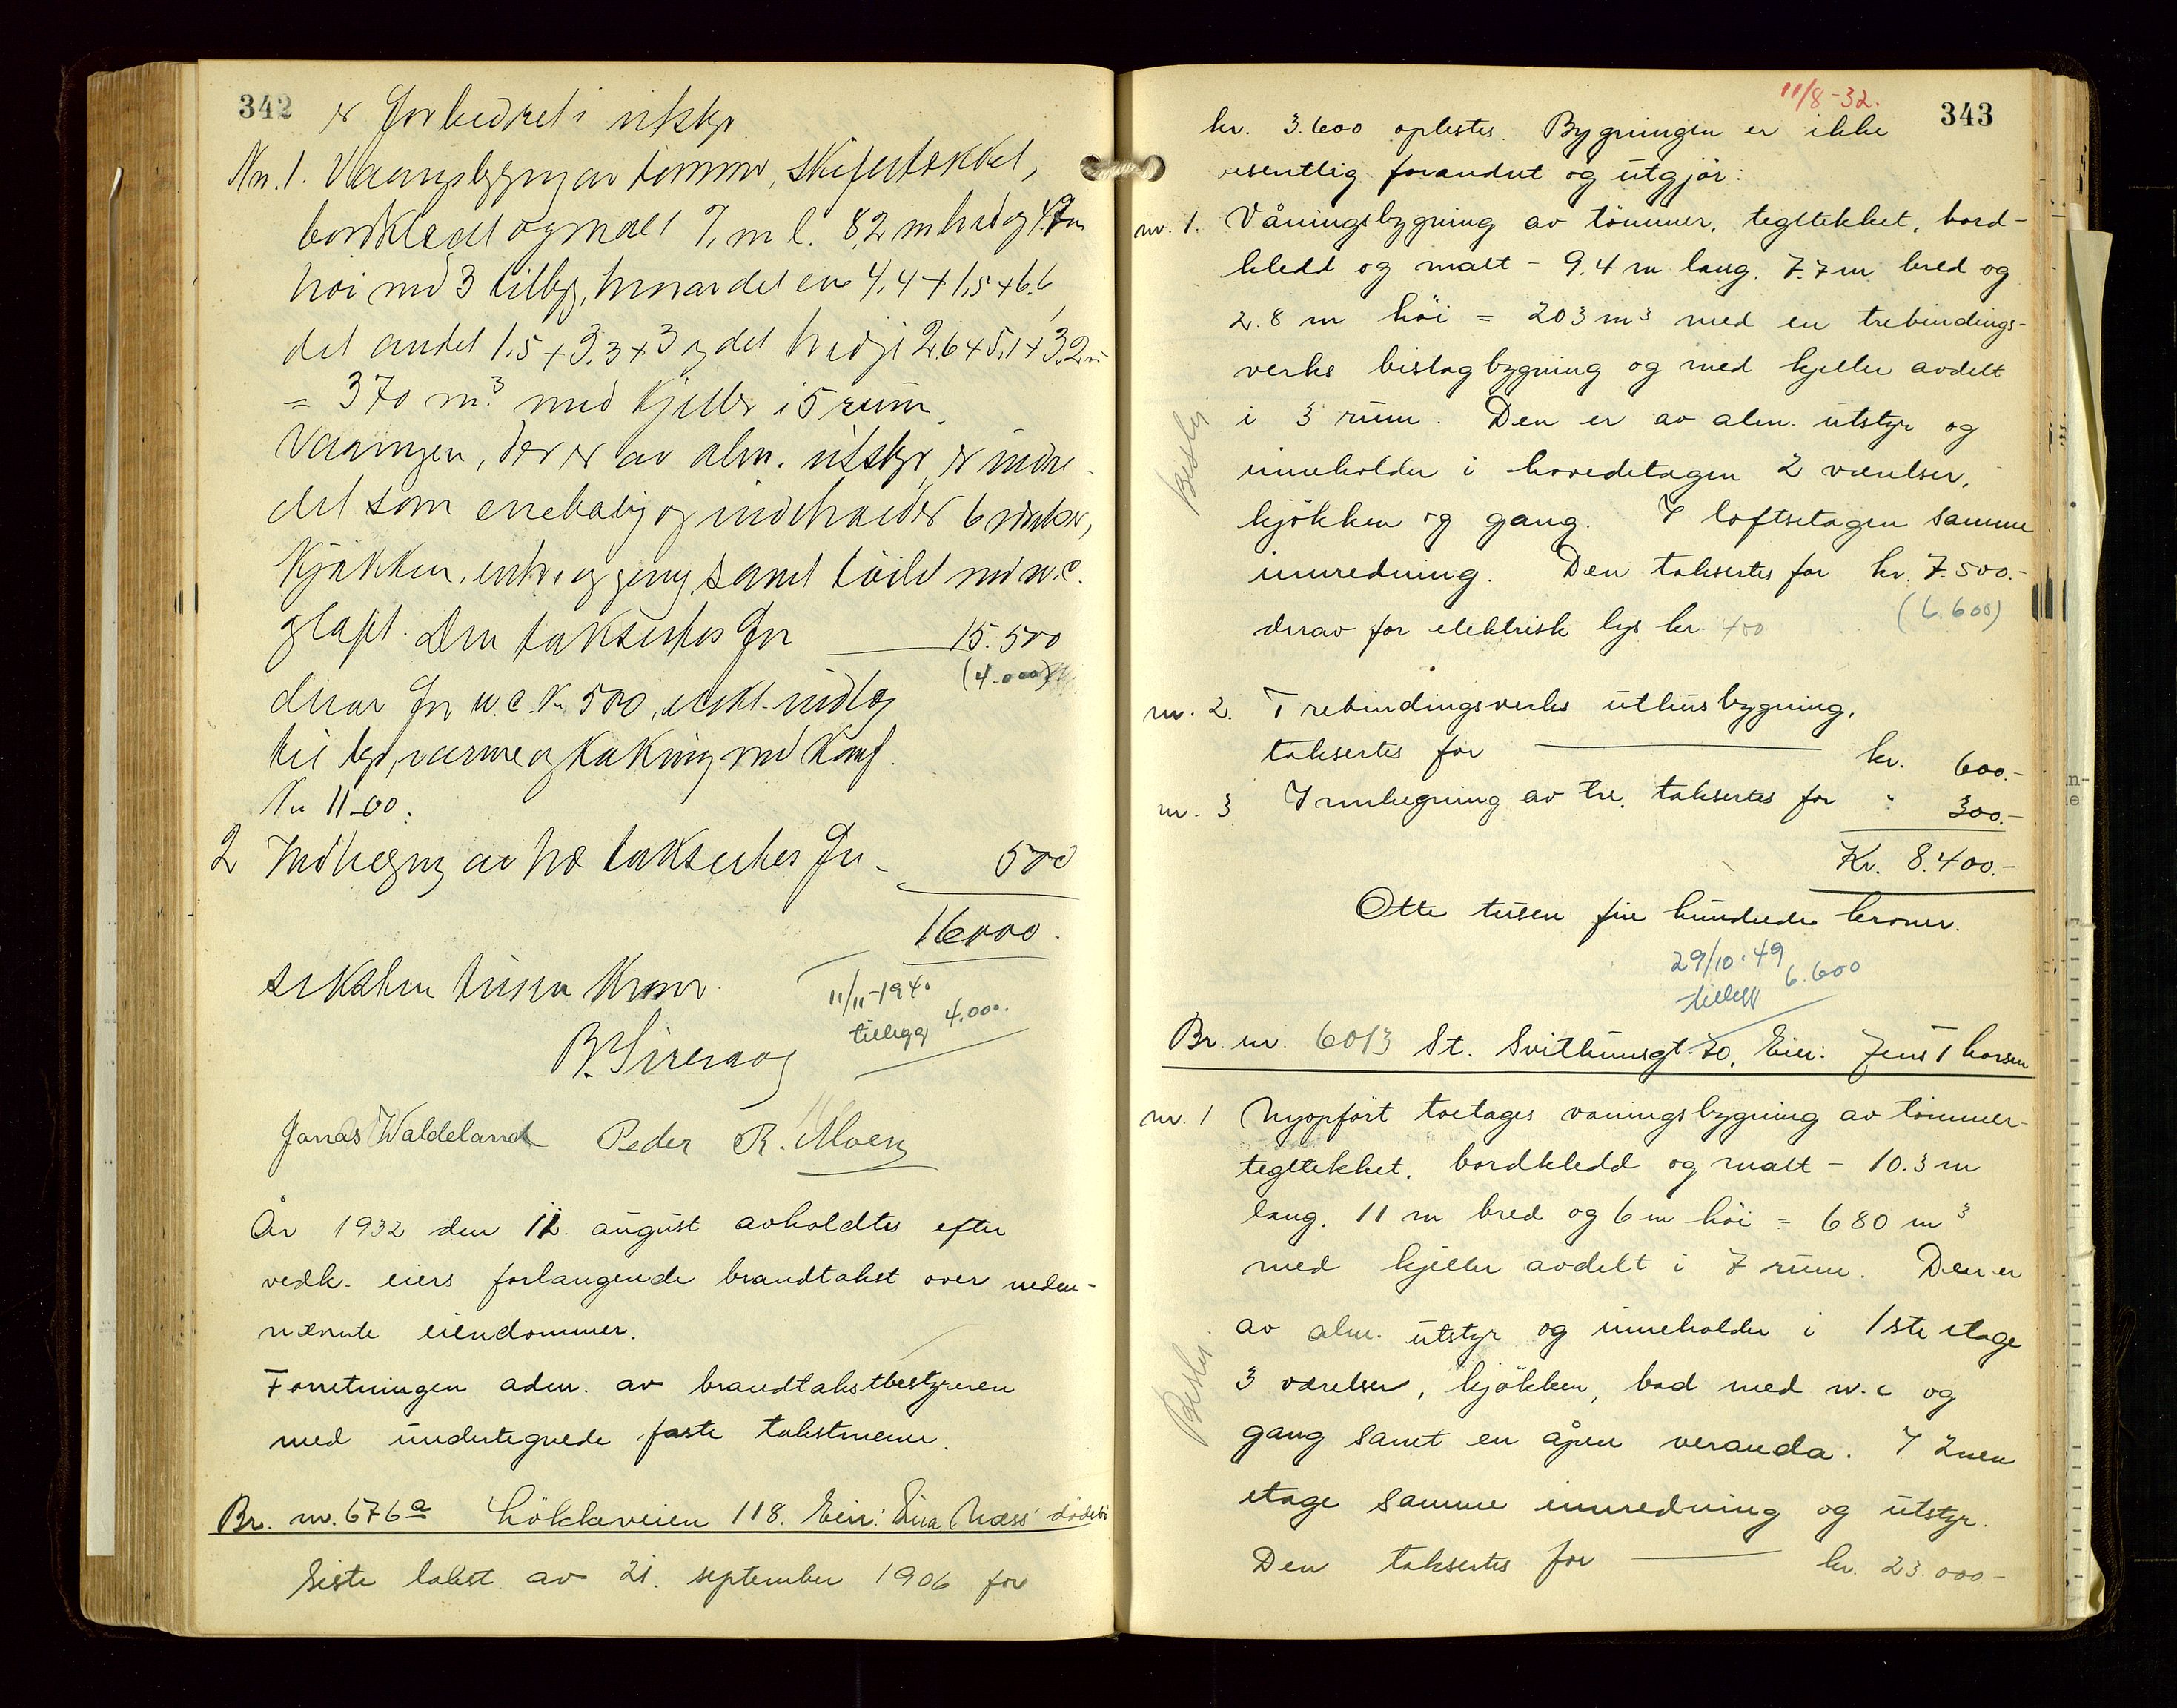 342
er forbedret i utstyr
No. 1. Vaaningsbygning av tømmer, skifertækket,
bordklædt og malt 7, m l. 8,2 m bred og 4,9 m
høi med 3 tilbyg, hvorav det ene 4,4 + 1,5 + 6.6,
det andet 1.5 + 3.3 + 3 og det tredje 2.6 + 5.1 + 3.2 m
= 370 m³ med kjelder i 5 rum.
Vaaningen, der er av alm. utstyr, er indre-
det som enebolig og indeholder 6 værelser,
kjøkken, entre og gang, samt toilet med w.c.
og loft. Den taksertes for 15.500
(4.000)
derav for w.c. kr 500, elekt. indlæg
til lys, varme og kokning med komf.
Kr 1100.
2 Indhegning av træ taksertes for - 500
16000.
seksten tusen kroner.
11/11-1940
tillegg 4.000.
B. Sirevaag
Jonas Waldeland Peder R. Moen
År 1932 den 11. august avholdtes efter
vedk. eiers forlangende brandtakst over neden-
nævnte eiendommer.
Forretningen adm. av brandtakstbestyreren
med undertegnede faste takstmenn.
Br. nr. 676a Lökkeveien 118. Eier: Lina Næss' dødsbo
Siste takst av 21. september 1906 for
11/8-32.
343
kr. 3.600 oplestes. Bygningen er ikke
vesentlig forandret og utgjör:
nr. 1. Våningsbygning av tömmer, tegltekket, bord-
kledd og malt - 9.4 m lang, 7.7 m bred og
2.8 m höi = 203 m³ med en trebindings-
verks bislagbygning og med kjeller avdelt
i 3 rum. Den er av alm. utstyr og
inneholder i hovedetagen 2 værelser,
kjökken og gang. I loftsetagen samme
innredning. Den taksertes for kr. 7.500.-
(6.600)
derav for elektrisk lys kr. 400
nr. 2. Trebindingsverks uthusbygning,
taksertes for kr. 600.-
nr. 3 Innhegning av tre, taksertes for " 300.-
Kr. 8.400.-
Otte tusen fire hundrede kroner.
29/10.49
tillegg 6.600
Br. nr. 6013 St. Svithunsgt. 70, Eier: Jens Thorsen
nr. 1 Nyopfört toetages våningsbygning av tömmer-
tegltekket, bordkledd og malt - 10.3 m
lang, 11 m bred og 6 m höi = 680 m³
med kjeller avdelt i 7 rum. Den er
av alm. utstyr og inneholder i 1ste etage
3 værelser, kjökken, bad med w.c og
gang samt en åpen veranda. I 2nen
etage samme innredning og utstyr.
Den taksertes for kr. 23.000.-